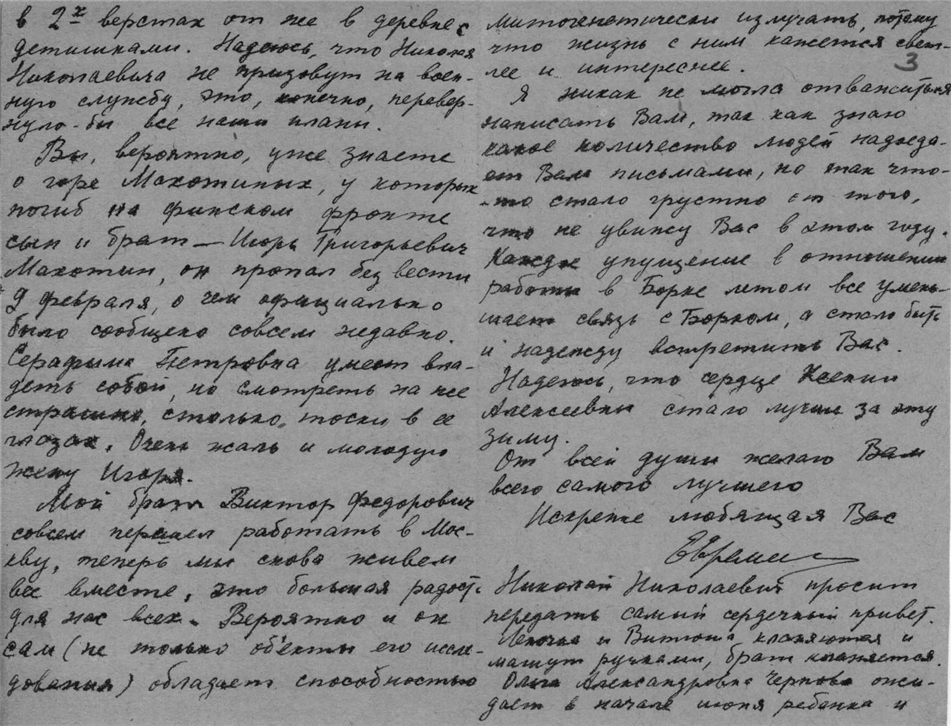 в 2х верстах от же в деревне с
детишками. Надеюсь, что Николая
Николаевича не призовут на воен-
ную службу, это, конечно, перевер-
нуло-бы все наши планы.
Вы, вероятно, уже знаете
о горе Макотиных, у которых
погиб на финском фронте
сын и брат — Игорь Григорьевич
Макотин, он пропал без вести
9 февраля, о чем официально
было сообщено совсем недавно.
Серафима Петровна умеет вла-
деть собой, но смотреть на нее
страшно, столько тоски в ее
глазах. Очень жаль и молодую
жену Игоря.
Мой брат Виктор Федорович
совсем перешел работать в Мос-
кву, теперь мы снова живем
все вместе, это большая радость
для нас всех. Вероятно и он
сам (не только объекты его иссле-
дования) обладает способностью
митогенетически излучать, потому
что жизнь с ним кажется свет-
лее и интереснее.
3
Я никак не могла отважиться
написать Вам, так как знаю
какое количество людей надоеда-
ет Вам письмами, но так что-
-то стало грустно от того,
что не увижу Вас в этом году.
Каждое упущение в отношении
работы в Борке летом все умень-
шает связь с Борком, а стало быть
и надежду встретить Вас.
Надеюсь, что сердце Ксении
Алексеевны стало лучше за эту
зиму.
От всей души желаю Вам
всего самого лучшего
Искренне любящая Вас
Николай Николаевич просит
передать самый сердечный привет.
Леночка и Витюша кланяются и
машут ручками, брат кланяется.
Ольга Александровна Чернова ожи-
дает в начале июня ребенка и